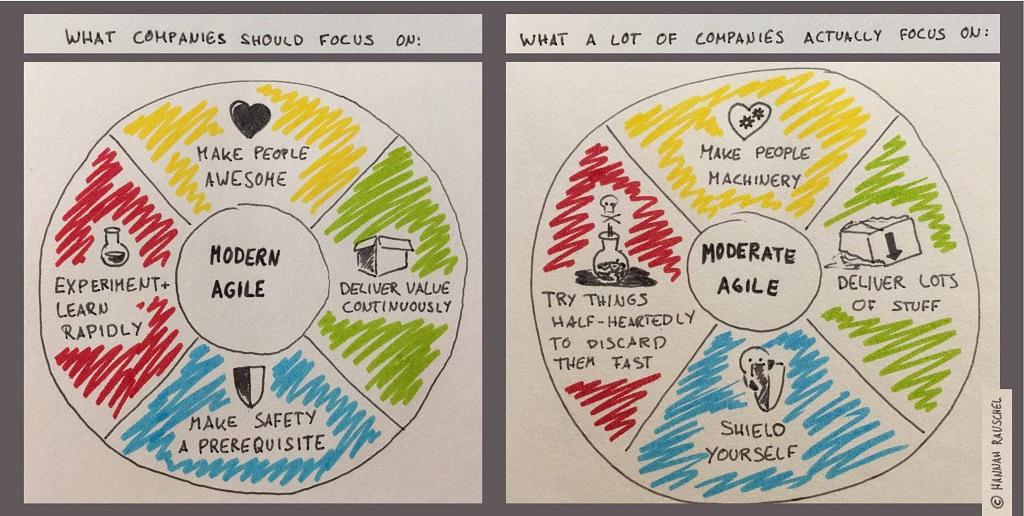 WHAT COMPANIES SHOULD FOCUS ON:
MAKE PEOPLE
AWESOME
MODERN
AGILE
EXPERIMENT+
LEARN
RAPIDLY
DELIVER VALUE
CONTINUOUSLY
MAKE SAFETY
A PREREQUISITE
WHAT A LOT OF COMPANIES ACTUALLY FOCUS ON:
MAKE PEOPLE
MACHINERY
MODERATE
AGILE
TRY THINGS
HALF-HEARTEDLY
TO DISCARD
THEM FAST
DELIVER LOTS
OF STUFF
SHIELD
YOURSELF
© HANNAH RAUSCHEL